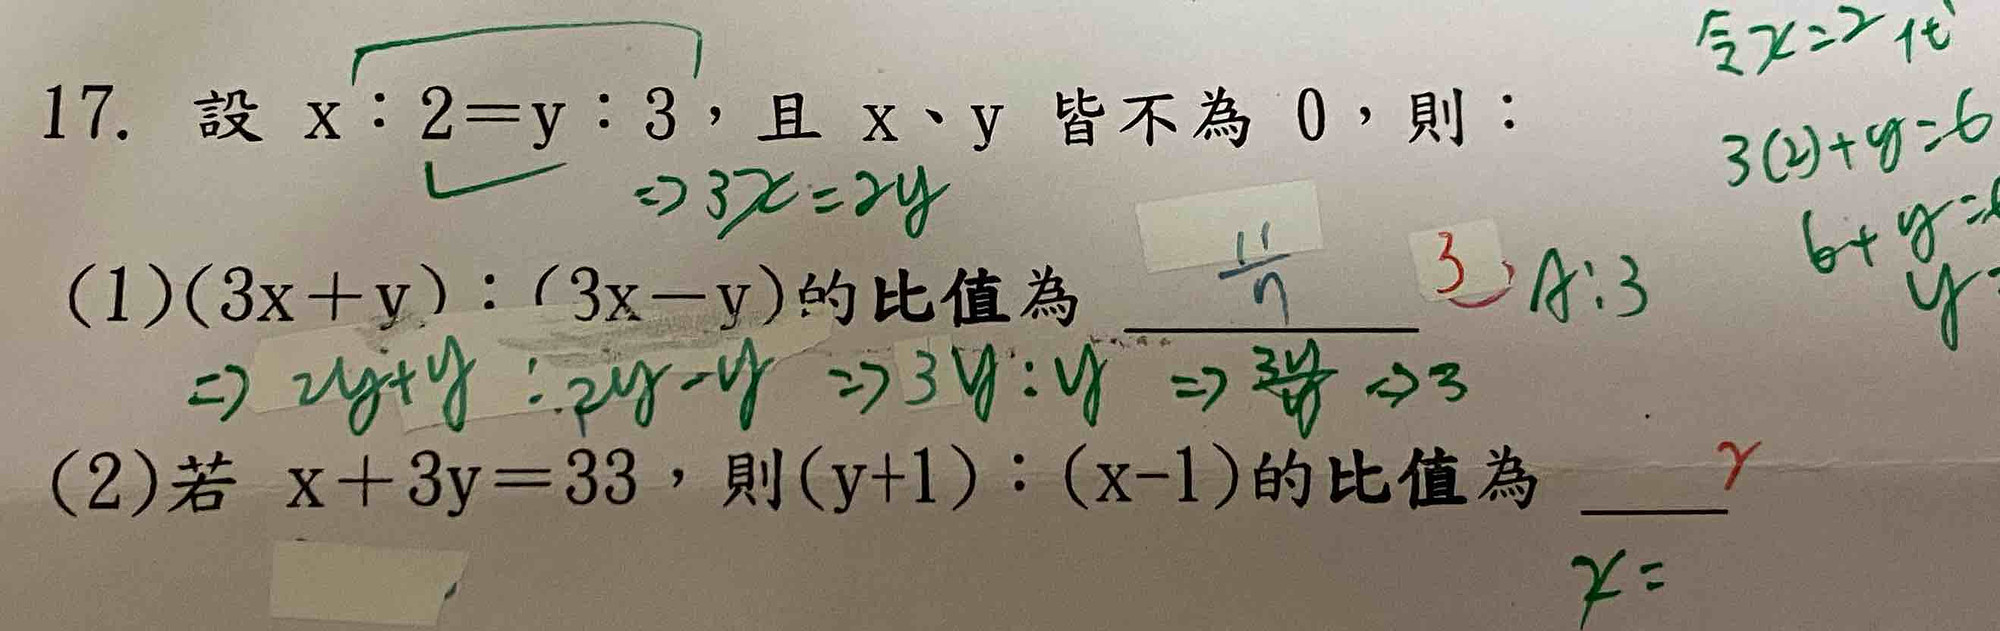 令x=2代
17. 設 x：2=y：3，且 x、y 皆不為 0，則：
3(2)+y=6
=>3x=2y
6+y=
(1)(3x+y)：(3x-y)的比值為 11/7 3, A:3
y=
=> 2y+y : 2y-y => 3y:y => 3y/y => 3
(2)若 x+3y=33，則(y+1)：(x-1)的比值為
x=